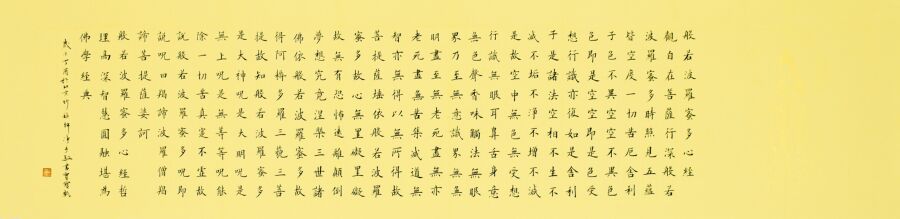 般若波羅蜜多心經
觀自在菩薩行深般若
波羅蜜多時照見五蘊
皆空度一切苦厄舍利
子色不異空空不異色
色即是空空即是色受
想行識亦復如是舍利
子是諸法空相不生不
滅不垢不淨不增不減
是故空中無色無受想
行識無眼耳鼻舌身意
無色聲香味觸法無眼
界乃至無意識界無無
明盡至無老死盡無亦
老死盡無苦集滅道無
智亦無得以無所得故
菩提薩埵依般若波羅
蜜多故心無罣礙罣礙
故無有恐怖遠離顛倒
夢想究竟涅槃三世諸
佛依般若波羅蜜多故
得阿耨多羅三藐三菩
提故知般若波羅蜜多
是大神咒是大明咒是
無上咒是無等等咒能
除一切苦真實不虛故
說般若波羅蜜多咒即
說咒曰揭諦波羅僧揭
諦菩提薩婆訶
般若波羅蜜多心經哲
理高深智慧圓融堪為
佛學經典